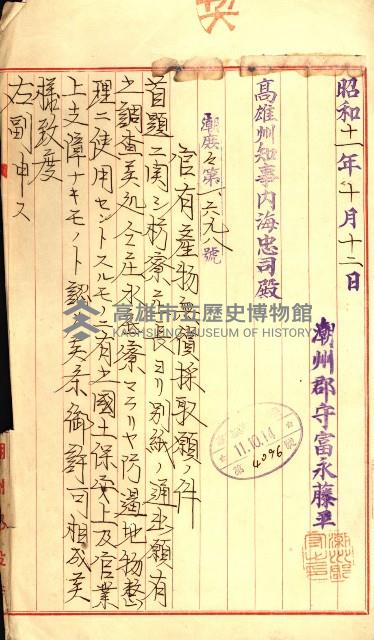 昭和十一年十月十二日
潮州郡守富永藤平
高雄州知事內海忠司殿
潮庶々第一六九八號
官有產物無償採取願ノ件
首題ニ関シ枋寮庄長ヨリ別紙ノ通出願有
之調査候処仝庄水底寮マラリヤ防遏地物整
理ニ使用セントスルモノニ有之國土保安上及官業
上支障ナキモノト認メ候条御許可相成候
樣致度
右副申ス
11.10.14
第4096號
高雄市立歷史博物館
KAOHSIUNG MUSEUM OF HISTORY